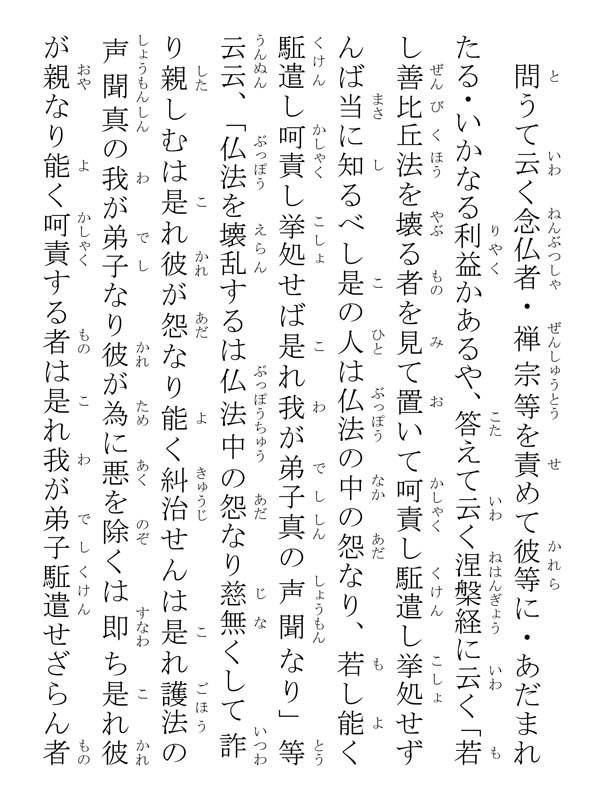 問うて云く念仏者・禅宗等を責めて彼等に・あだまれ
たる・いかなる利益かあるや、答えて云く涅槃経に云く「若
し善比丘法を壊る者を見て置いて呵責し駈遣し挙処せず
んば当に知るべし是の人は仏法の中の怨なり、若し能く
駈遣し呵責し挙処せば是れ我が弟子真の声聞なり」等
云云、「仏法を壊乱するは仏法中の怨なり慈無くして詐
り親しむは是れ彼が怨なり能く糾治せんは是れ護法の
声聞真の我が弟子なり彼が為に悪を除くは即ち是れ彼
が親なり能く呵責する者は是れ我が弟子駈遣せざらん者